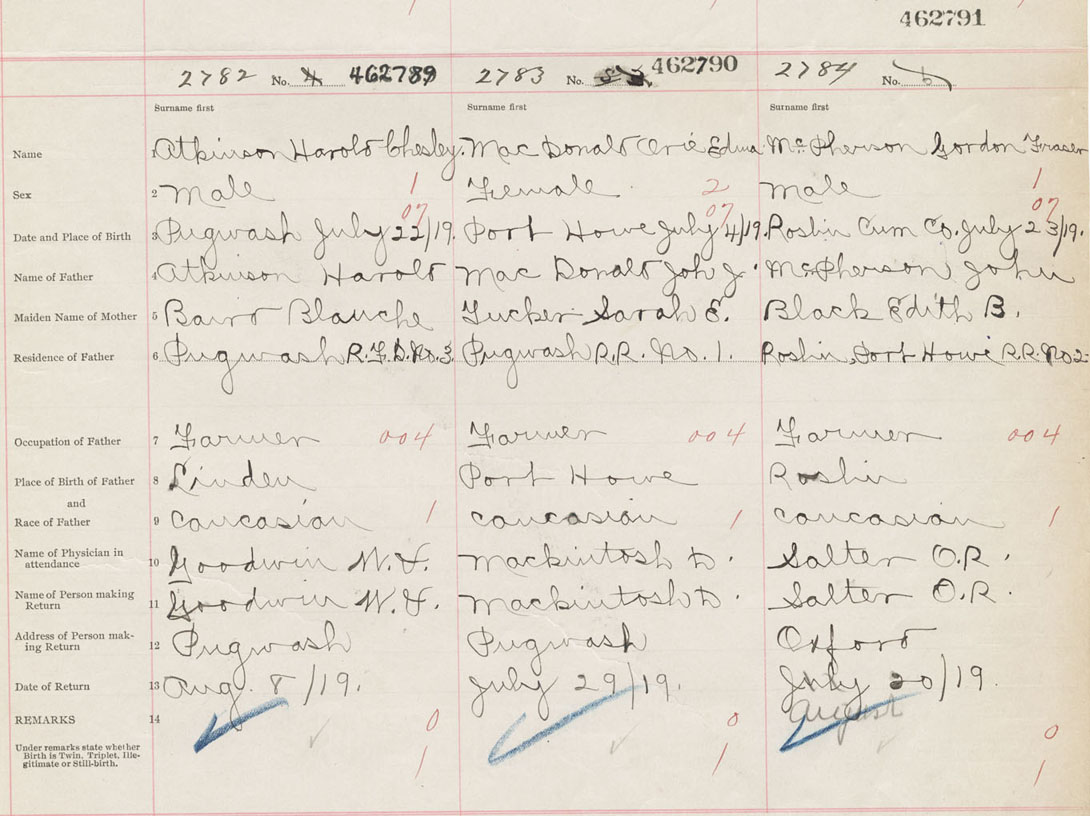 462791
2782 No. 4 462789 2783 No. 5 462790 2784 No. 6
Surname first Surname first Surname first
Name 1 Atkinson Harold Chesley. MacDonald Edna McPherson Gordon Fraser
Sex 2 Male 1 Female 2 Male 1
07 07 07
Date and Place of Birth 3 Pugwash July 22/19. Port Howe July 4/19. Roslin Cum Co. July 23/19.
Name of Father 4 Atkinson Harold MacDonald Joh J. McPherson John
Maiden Name of Mother 5 Baird Blanche Tucker Sarah E. Black Edith B.
Residence of Father 6 Pugwash R.F.D. No. 3. Pugwash R.R. No. 1. Roslin, Port Howe R.R. No 2
Occupation of Father 7 Farmer 004 Farmer 004 Farmer 004
Place of Birth of Father 8 Linden Port Howe Roslin
and
Race of Father 9 Caucasian 1 Caucasian 1 Caucasian 1
Name of Physician in
attendance 10 Goodwin Mackintosh D. Salter O.R.
Name of Person making
Return 11 Goodwin Mackintosh D. Salter O.R.
Address of Person mak-
ing Return 12 Pugwash Pugwash Oxford
Date of Return 13 Aug. 8/19. July 29/19. July 20/19.
August
REMARKS 14 0 0 0
Under remarks state whether
Birth is Twin, Triplet, Ille-
gitimate or Still-birth. 1 1 1